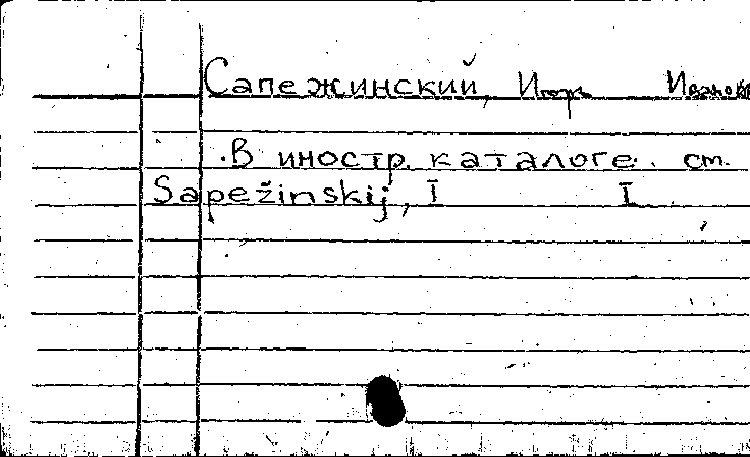 Сапежинский, Игорь
В иностр. каталоге см.
Sapežinskij, I I.